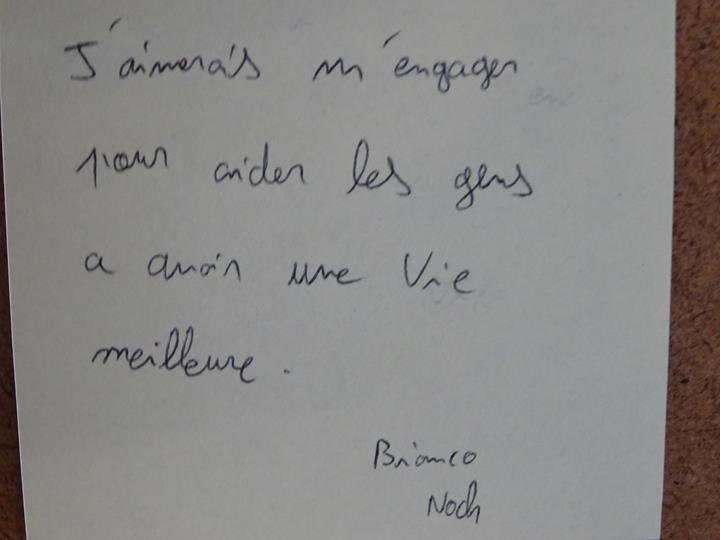 J'aimerais m'engager
pour aider les gens
a avoir une Vie
meilleure.
Bianco
Noch